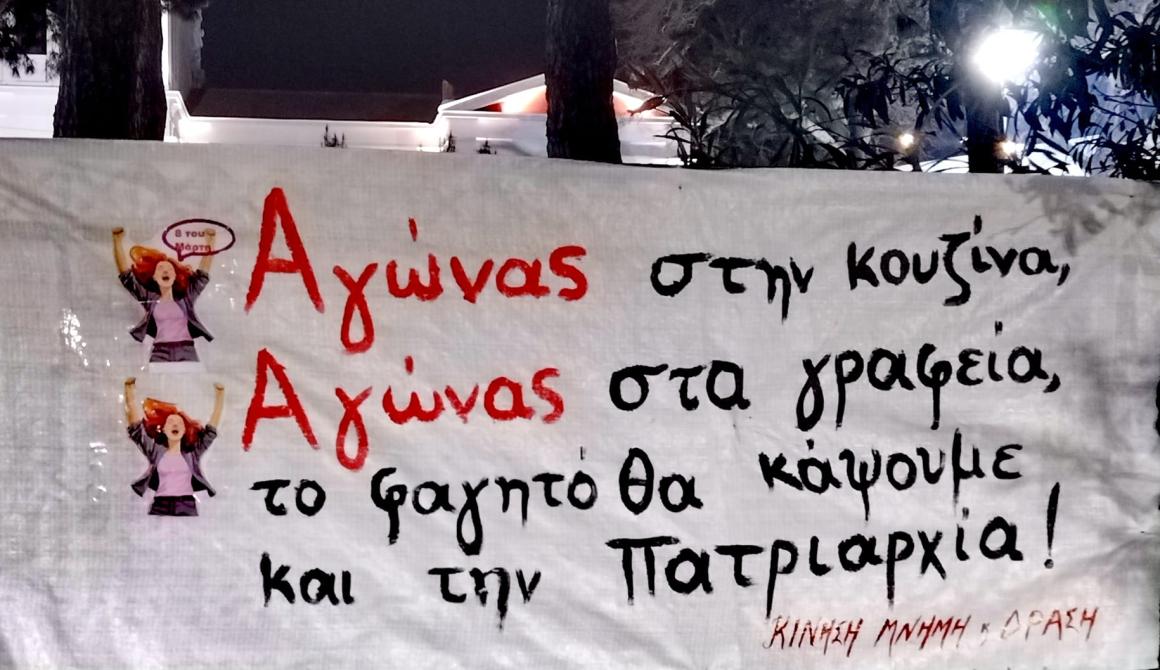 8 του
Μάρτη
Αγώνας στην κουζίνα,
Αγώνας στα γραφεία,
το φαγητό θα κάψουμε
και την Πατριαρχία!
ΚΙΝΗΣΗ ΜΝΗΜΗ κ ΔΡΑΣΗ